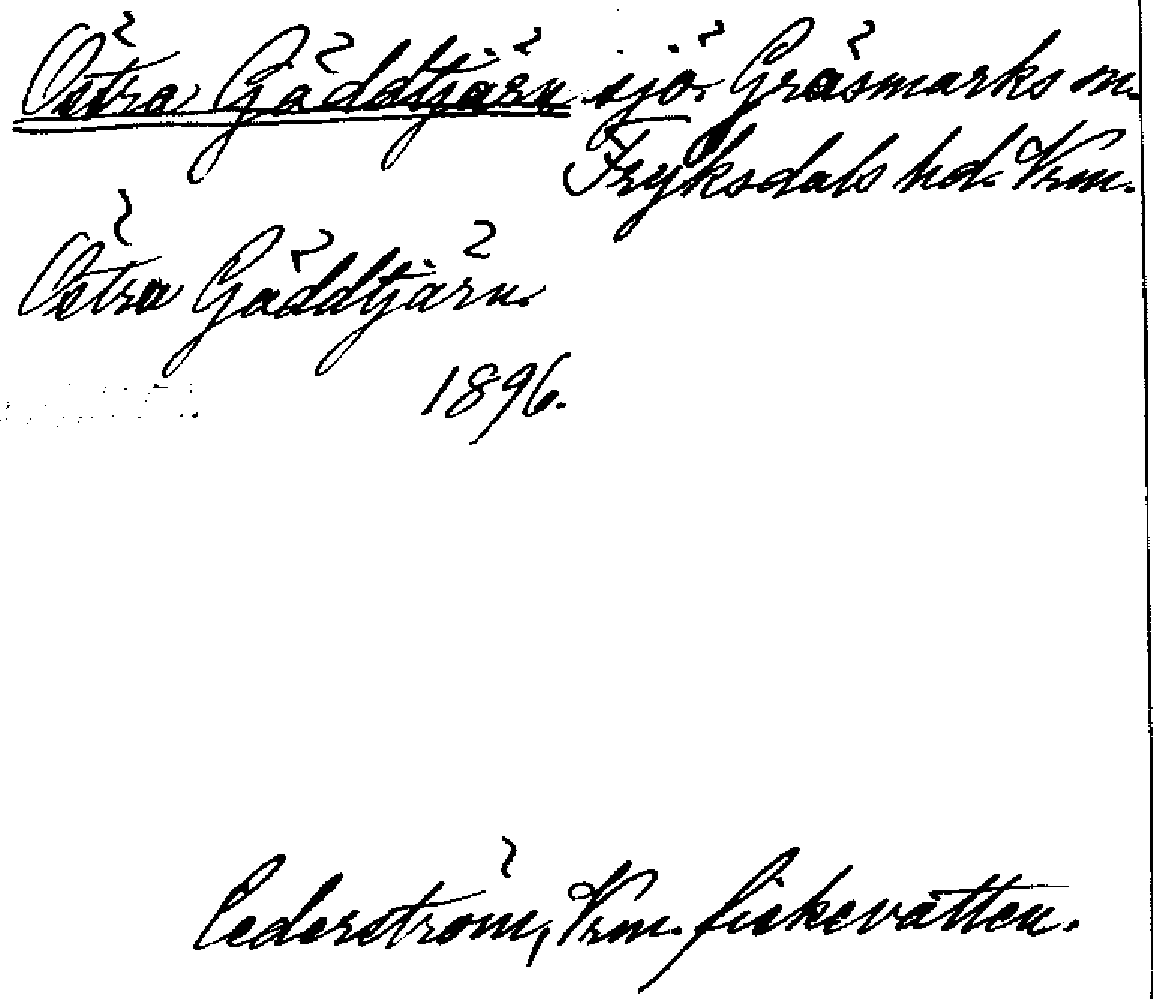 Östra Gäddtjärn sjö. Gräsmarks sn.
Fryksdals hd. Vrm.
Östra Gäddtjärn.
1896.
Cederström, Vrm. fiskevatten.